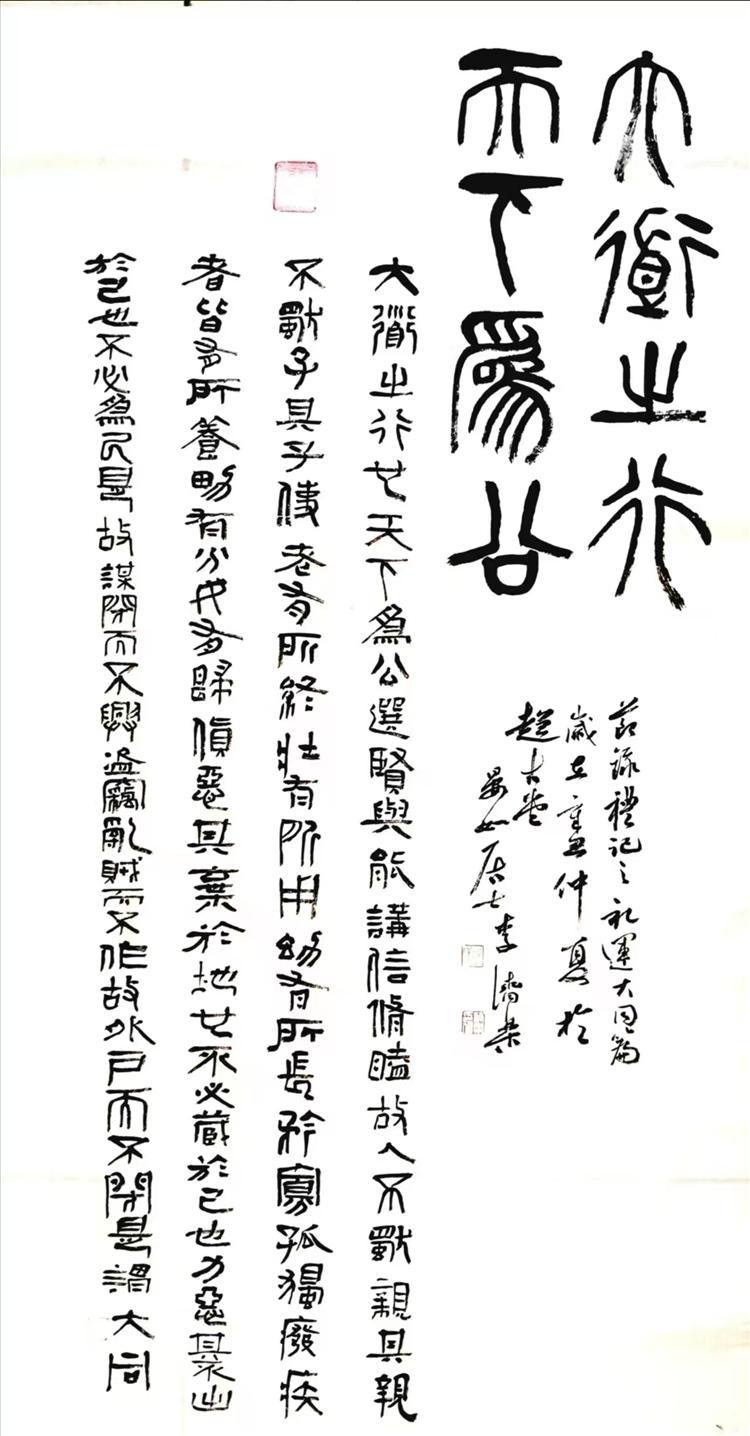 大道之行
天下爲公
節錄禮記之礼運大同篇
歲在重五仲夏於
晏如居士李濟榮
大道之行也天下爲公選賢與能講信脩睦故人不獨親其親
不獨子其子使老有所終壯有所用幼有所長矜寡孤獨廢疾
者皆有所養男有分女有歸貨惡其棄於地也不必藏於己也力惡其不出
於身也不必爲己是故謀閉而不興盜竊亂賊而不作故外戶而不閉是謂大同